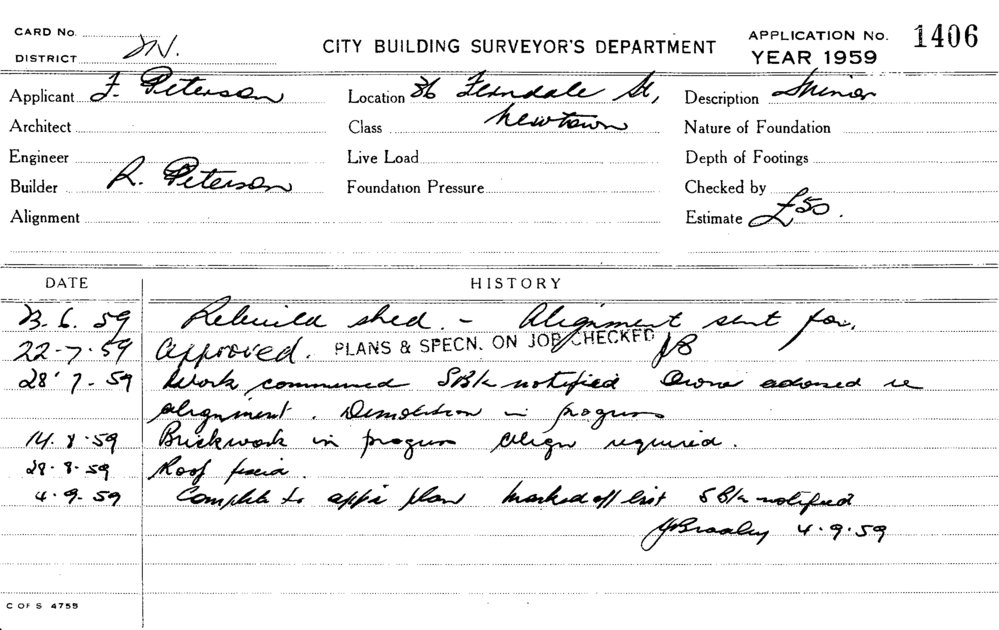 CARD No.
DISTRICT N.
CITY BUILDING SURVEYOR'S DEPARTMENT
APPLICATION No. 1406
YEAR 1959
Applicant F. Peterson
Location 36 Ferndale St,
Description Minor
Architect
Class Newtown
Nature of Foundation
Engineer
Live Load
Depth of Footings
Builder R. Peterson
Foundation Pressure
Checked by
Alignment
Estimate £50.
DATE HISTORY
23. 6. 59 Rebuild shed. - Alignment sent for.
22-7-59 Approved. PLANS & SPECN. ON JOB CHECKED
28.7.59 Work commenced notified Owner advised re
alignment. Demolition in progress
14.8.59 Brickwork in progress align required.
28.8.59 Roof
4.9.59 Complete to plan marked off list notified
4.9.59
C OF S 4755